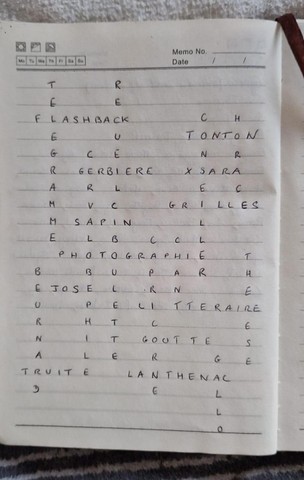 Memo No.
Mo Tu We Th Fr Sa Su
Date / /
T R
E E
F L A S H B A C K C H
E U T O N T O N
G C E N R
R G E R B I E R E X S A R A
A R L E C
M V C G R I L L E S
M S A P I N L
E L B C C L
P H O T O G R A P H I E T
B B U P A R H
E J O S E L R N E
U P E L I T T E R A I R E
R H T C E
N I T G O U T T E S
A L E R G E
T R U I T E L A N T H E N A C
D E L
L
O